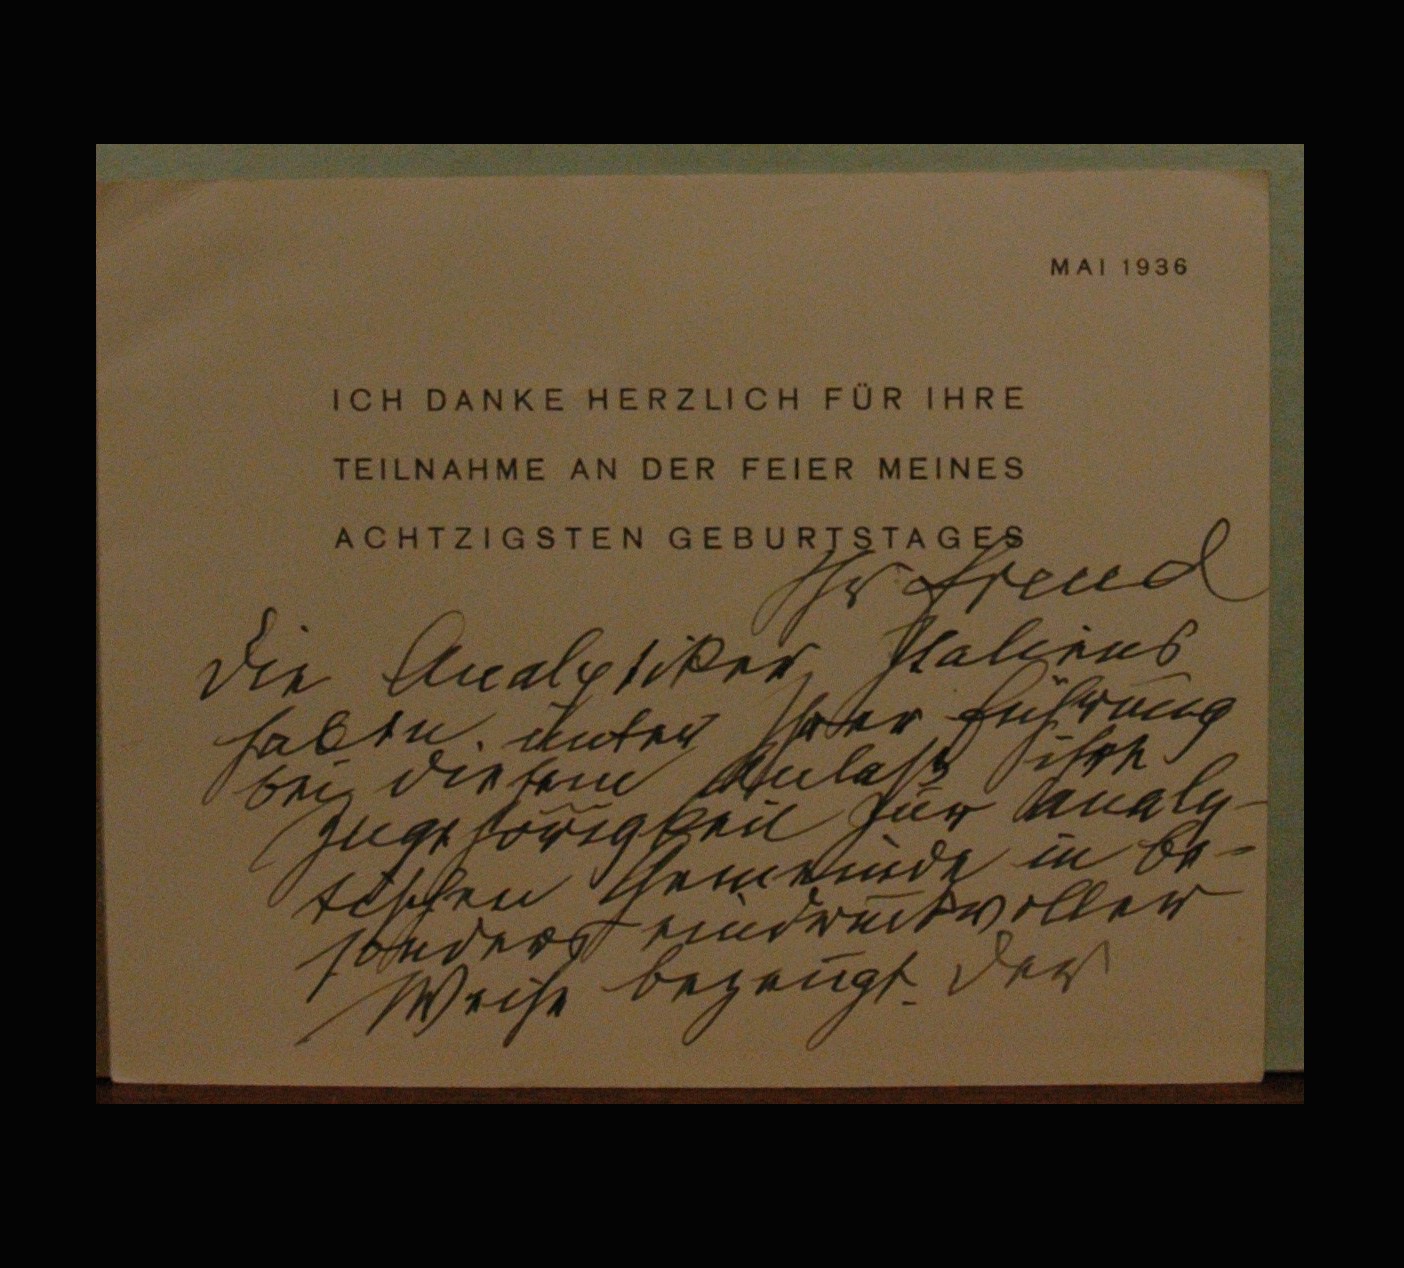 MAI 1936
ICH DANKE HERZLICH FÜR IHRE
TEILNAHME AN DER FEIER MEINES
ACHTZIGSTEN GEBURTSTAGES
Ihr Freud
Die Analytiker Italiens
haben unter Ihrer Führung
bei diesem Anlaß ihre
Zugehörigkeit zur analy-
tischen Gemeinde in be-
sonders eindrucksvoller
Weise bezeugt. Der